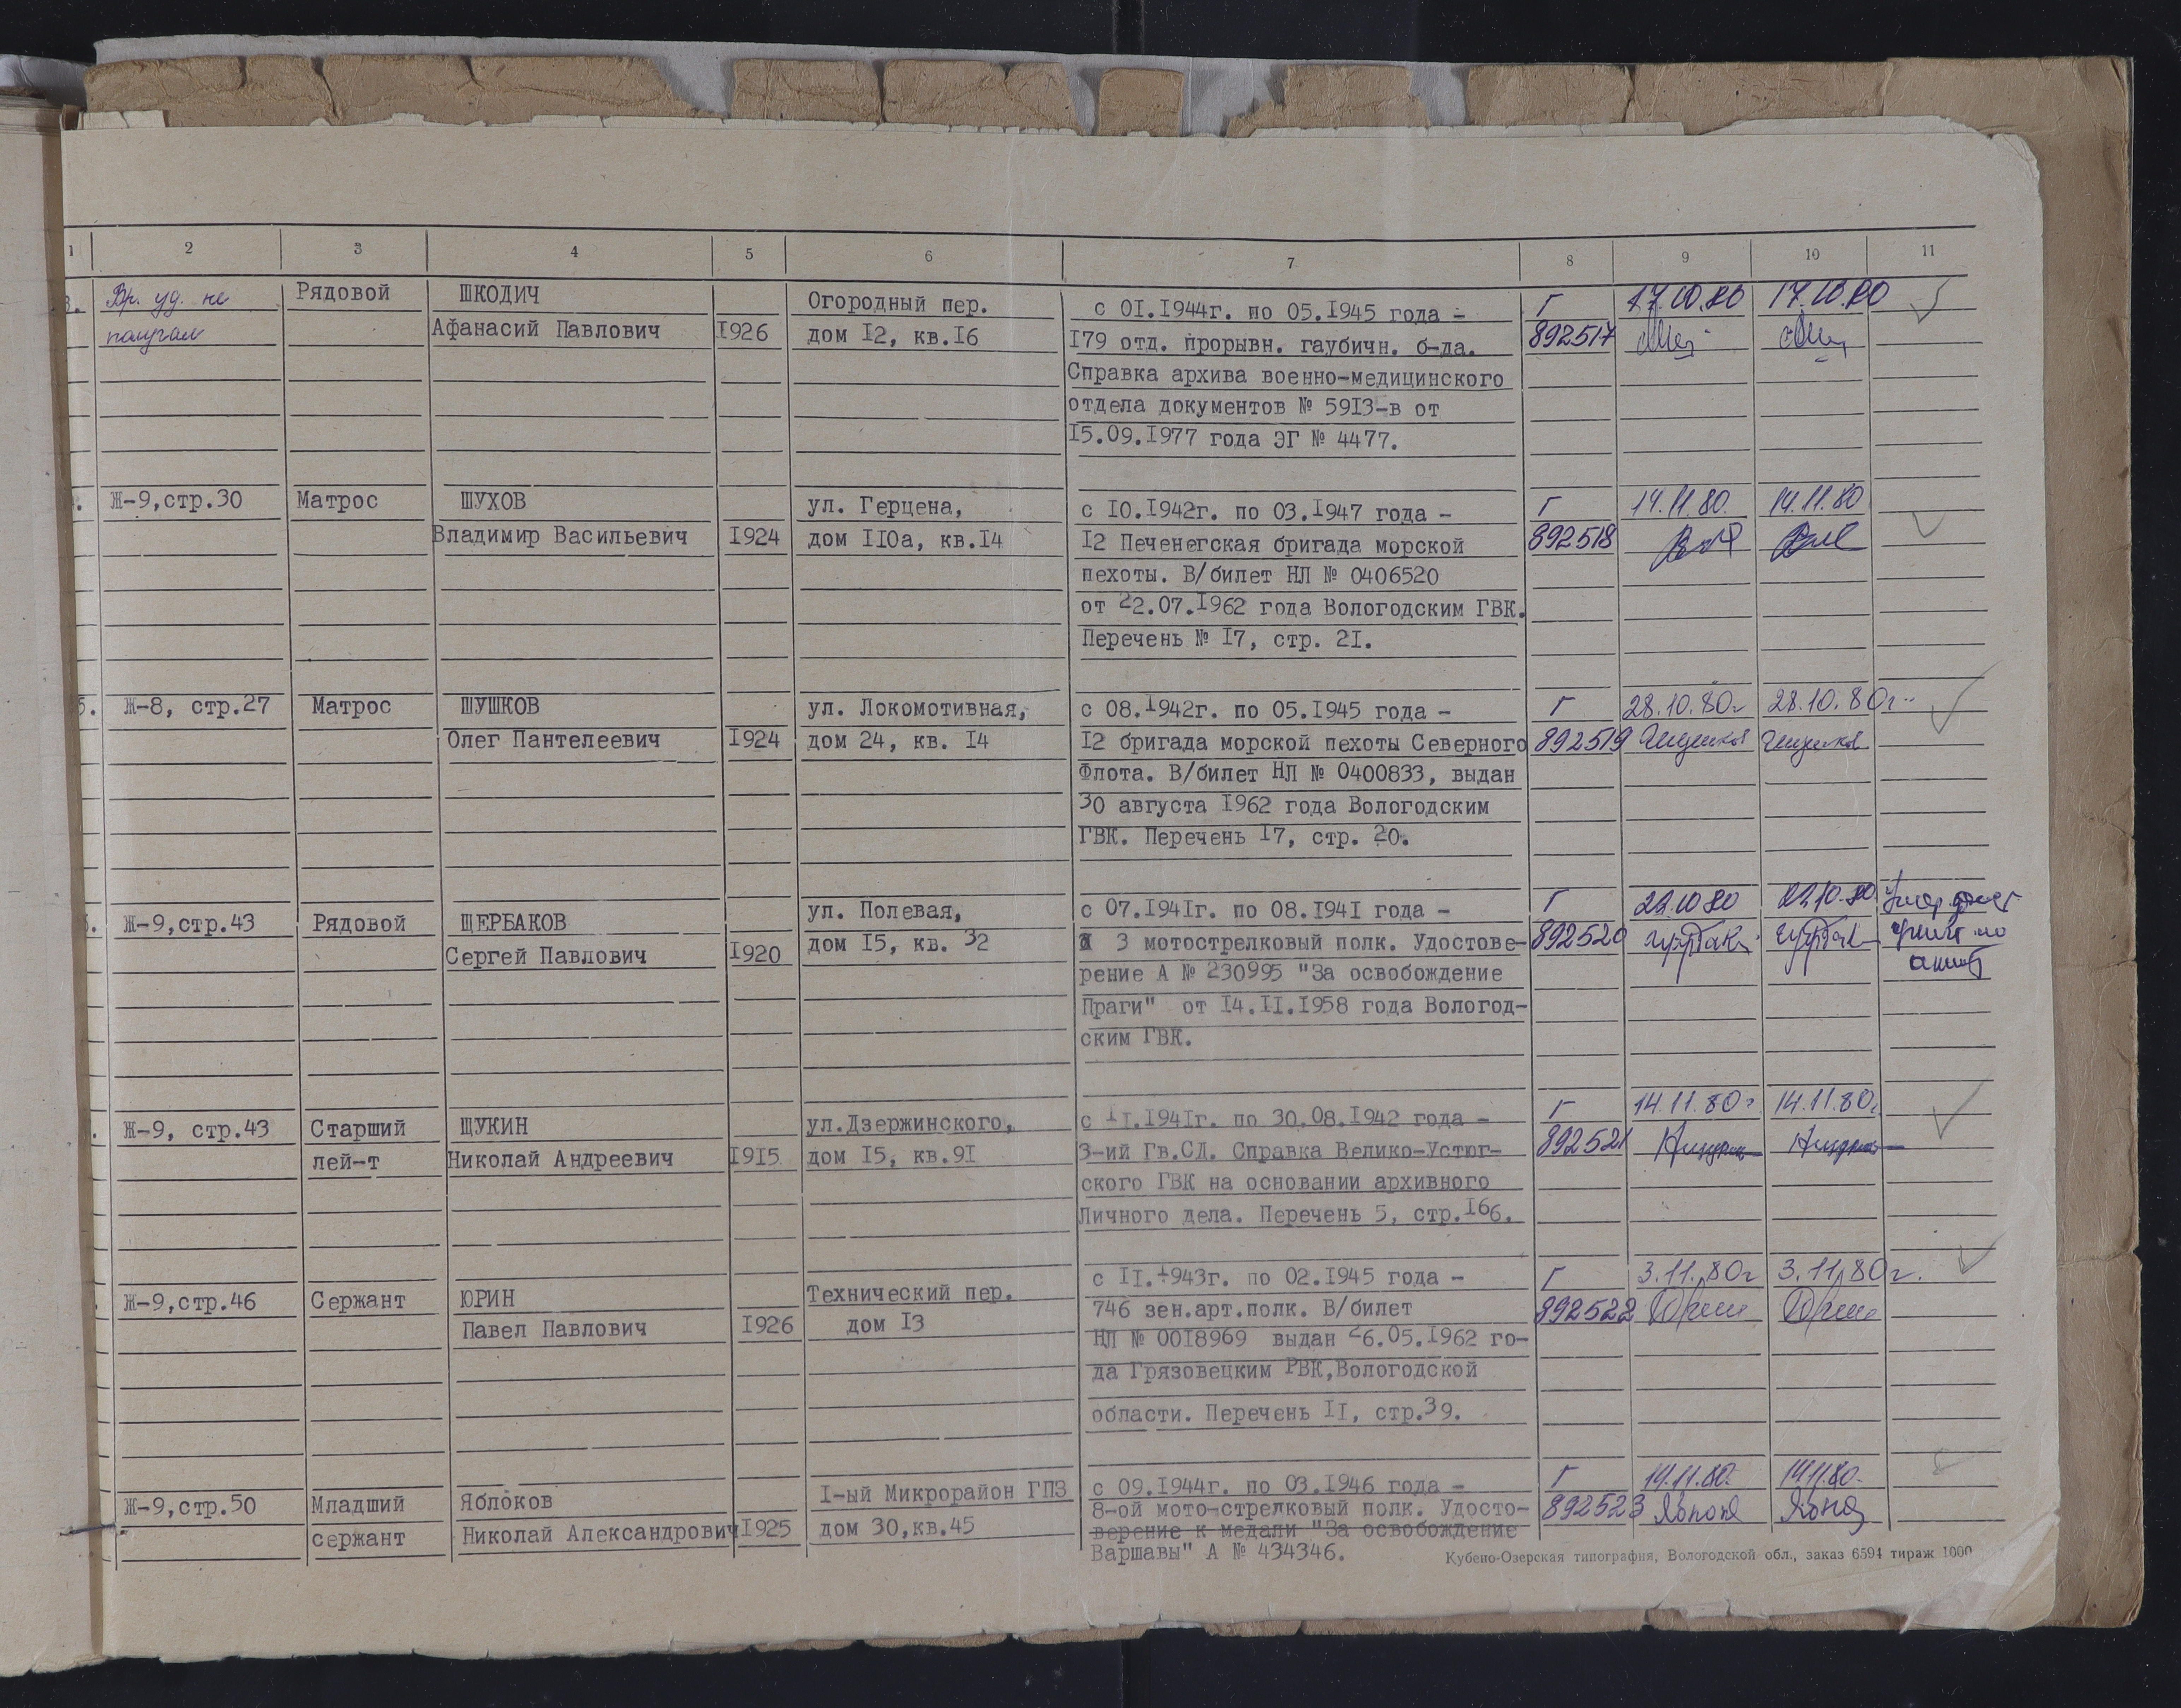 1 2 3 4 5 6 7 8 9 10 11
3. Вр. уд. не
получал
Рядовой
ШКОДИЧ
Афанасий Павлович
1926
Огородный пер.
дом 12, кв.16
с 01.1944г. по 05.1945 года –
179 отд. прорывн. гаубичн. б-да.
Справка архива военно-медицинского
отдела документов № 5913-в от
15.09.1977 года ЭГ № 4477.
Г
892517
17.10.80
17.10.80
Ж-9,стр.30
Матрос
ШУХОВ
Владимир Васильевич
1924
ул. Герцена,
дом 110а, кв.14
с 10.1942г. по 03.1947 года –
12 Печенегская бригада морской
пехоты. В/билет НЛ № 0406520
от 22.07.1962 года Вологодским ГВК.
Перечень № 17, стр. 21.
Г
892518
14.11.80.
14.11.80
5. Ж-8, стр.27
Матрос
ШУШКОВ
Олег Пантелеевич
1924
ул. Локомотивная,
дом 24, кв. 14
с 08.1942г. по 05.1945 года –
12 бригада морской пехоты Северного
Флота. В/билет НЛ № 0400833, выдан
30 августа 1962 года Вологодским
ГВК. Перечень 17, стр. 20.
Г
892519
28.10.80г
28.10.80г.
Ж-9,стр.43
Рядовой
ЩЕРБАКОВ
Сергей Павлович
1920
ул. Полевая,
дом 15, кв. 32
с 07.1941г. по 08.1941 года –
3 мотострелковый полк. Удостове-
рение А № 230995 "За освобождение
Праги" от 14.11.1958 года Вологод-
ским ГВК.
Г
892520
22.10.80
22.10.80
Ж-9, стр.43
Старший
лей-т
ЩУКИН
Николай Андреевич
1915
ул.Дзержинского,
дом 15, кв.91
с 11.1941г. по 30.08.1942 года –
3-ий Гв.СД. Справка Велико-Устюг-
ского ГВК на основании архивного
Личного дела. Перечень 5, стр.166.
Г
892521
14.11.80г.
14.11.80г.
Ж-9,стр.46
Сержант
ЮРИН
Павел Павлович
1926
Технический пер.
дом 13
с 11.1943г. по 02.1945 года –
746 зен.арт.полк. В/билет
НЛ № 0018969 выдан 26.05.1962 го-
да Грязовецким РВК,Вологодской
области. Перечень 11, стр.39.
Г
892522
3.11.80г
3.11.80г.
Юрин
Юрин
Ж-9,стр.50
Младший
сержант
Яблоков
Николай Александрович
1925
1-ый Микрорайон ГПЗ
дом 30,кв.45
с 09.1944г. по 03.1946 года –
8-ой мото-стрелковый полк. Удосто-
верение к медали "За освобождение
Варшавы" А № 434346.
Г
892523
14.11.80.
14.11.80.
Кубено-Озерская типография, Вологодской обл., заказ 6594 тираж 1000